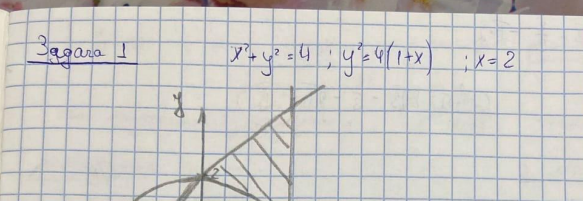 Задача 1 x²+y²=4 ; y²=4(1+x) ; x=2
y
2